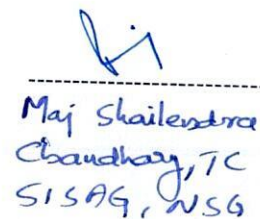 Maj Shailendra
Chaudhary, TC
SISAG, NSG